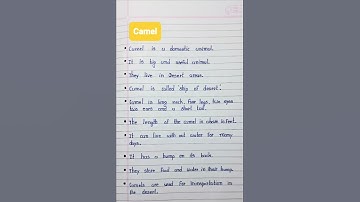 Camel
Camel is a domestic animal.
It is big and useful animal.
They live in Desert areas.
Camel is called 'ship of desert'.
Camel is long neck, four legs, two eyes
two ears and a short tail.
The length of the camel is above feet.
It can live with out water for many
days.
It has a hump on its back.
They store food and water in their hump.
Camels are used for transportation in
the desert.